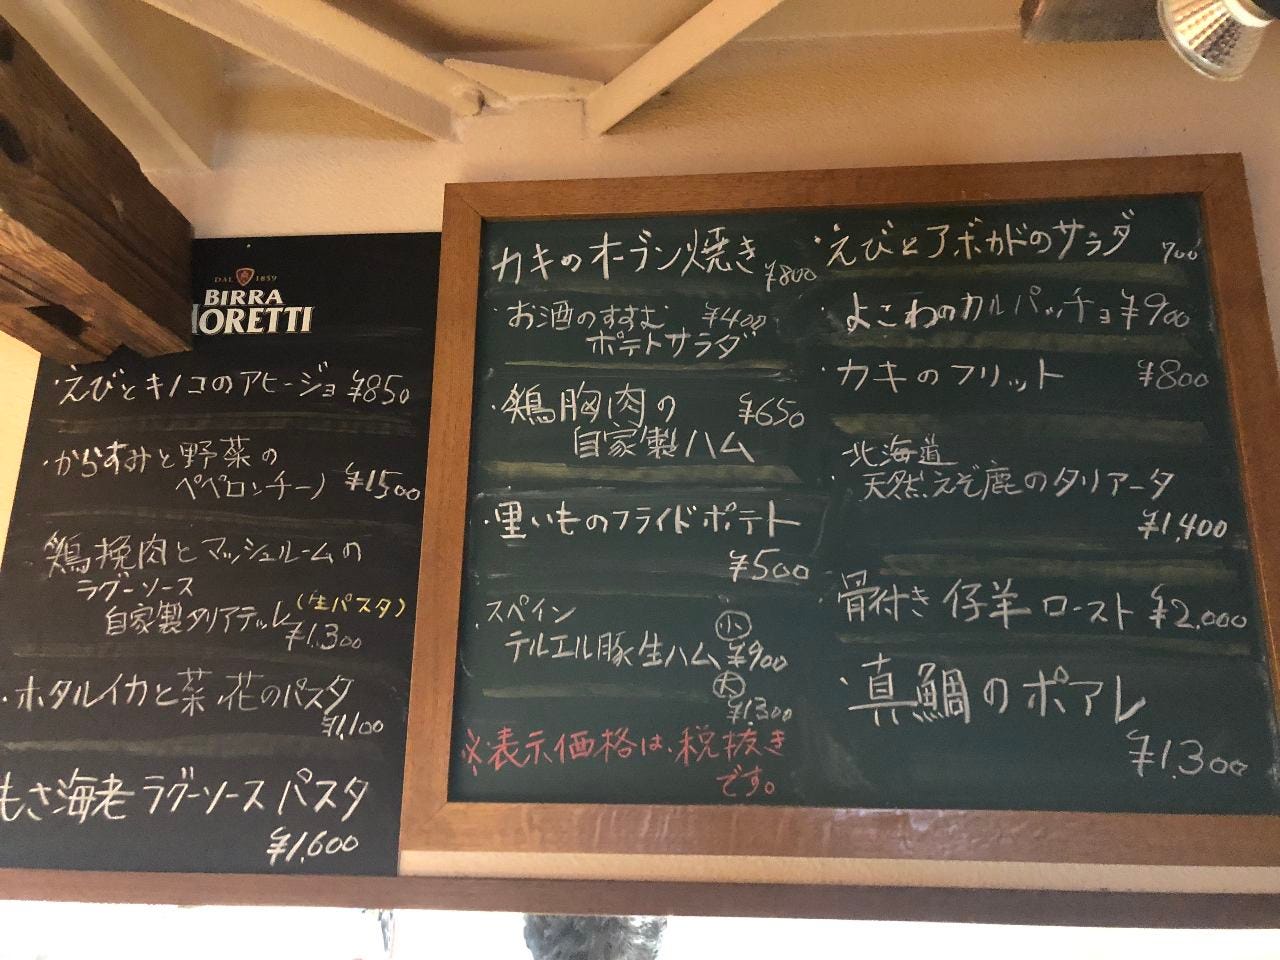 DAL 1859
BIRRA
MORETTI
・えびとキノコのアヒージョ ¥850
・からすみと野菜の
ペペロンチーノ ¥1500
鶏挽肉とマッシュルームの
ラグーソース
自家製タリアテッレ (生パスタ)
¥1,300
・ホタルイカと菜の花のパスタ
¥1,100
もさ海老 ラグーソース パスタ
¥1,600
カキのオーブン焼き ¥800
・お酒のすすむ ¥400
ポテトサラダ
・鶏胸肉の ¥650
自家製ハム
・里いものフライドポテト
¥500
・スペイン
テルエル豚生ハム 小 ¥900
大 ¥1300
※表示価格は、税抜き
です。
・えびとアボカドのサラダ 700
・よこわのカルパッチョ ¥900
・カキのフリット ¥800
・北海道
天然えぞ鹿のタリアータ
¥1,400
・骨付き仔羊ロースト ¥2,000
・真鯛のポアレ
¥1,300